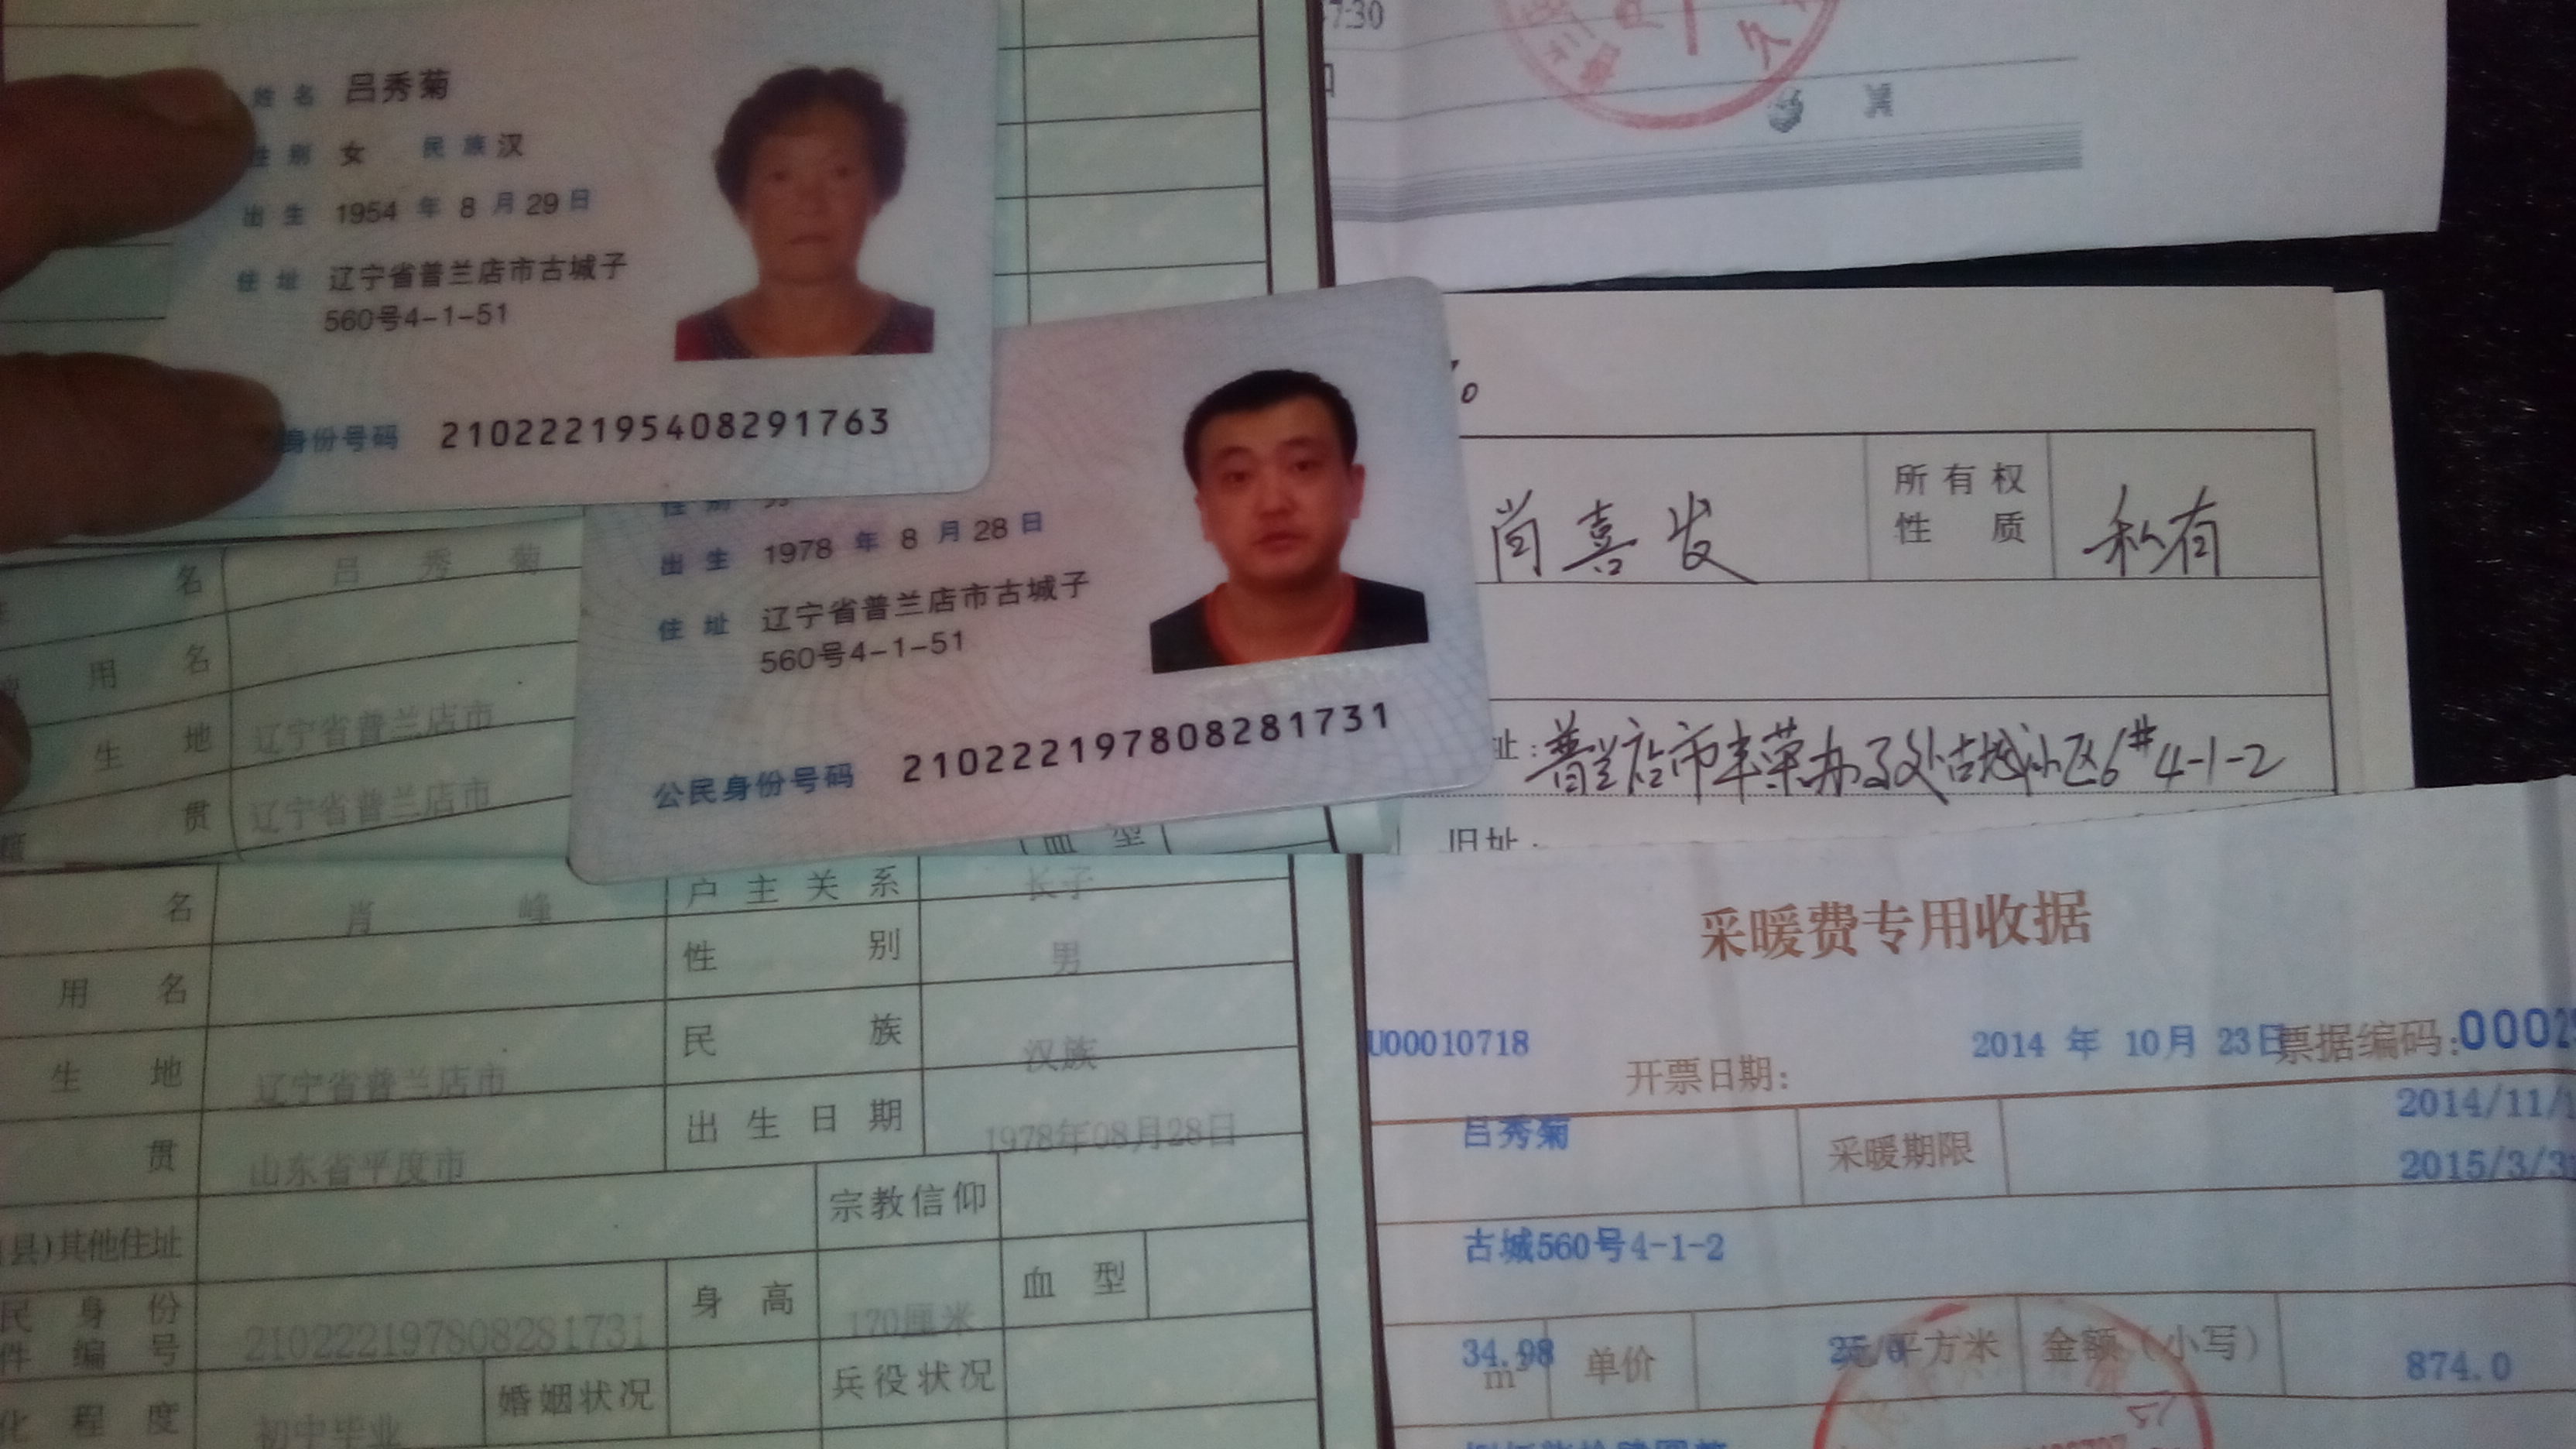 姓名 吕秀菊
性别 女 民族 汉
出生 1954 年 8 月 29 日
住址 辽宁省普兰店市古城子
560号4-1-51
身份号码 210222195408291763
出生 1978 年 8 月 28 日
住址 辽宁省普兰店市古城子
560号4-1-51
公民身份号码 210222197808281731
名 吕秀菊
用名
生地 辽宁省普兰店市
贯 辽宁省普兰店市
血型
名 肖峰 户主关系 长子
用名 性别 男
生地 辽宁省普兰店市 民族 汉族
贯 山东省平度市 出生日期 1978年08月28日
县)其他住址 宗教信仰
民身份
件编号 210222197808281731 身高 170厘米 血型
化程度 初中毕业 婚姻状况 兵役状况
7:30
肖喜发 所有权性质 私有
址:普兰店市丰荣办事处古城小区6#4-1-2
旧址:
采暖费专用收据
U00010718 开票日期: 2014 年 10月 23日 票据编码:0002
吕秀菊 采暖期限 2014/11/
2015/3/3
古城560号4-1-2
34.98 m² 单价 元/平方米 金额(小写) 874.0